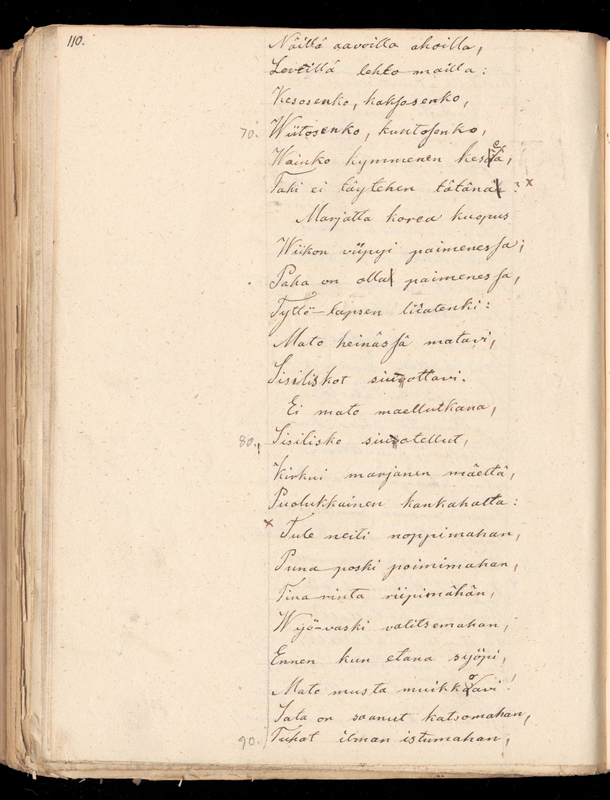 110.
Näillä aavoilla ahoilla,
Leveillä lehto mailla:
Kesosenko, kaksosenko,
70. Wiitosenko, kuutosenko,
Wainko kymmenen keseä,
Tahi ei täytehen tätänä? x
Marjatta korea kuopus
Wiikon viipyi paimenessa;
Paha on olla paimenessa,
Tyttö-lapsen liiatenki:
Mato heinässä matavi,
Sisiliskot siuottavi.
Ei mato maellutkana,
80. Sisilisko siuotellut,
Kirkui marjanen mäeltä,
Puolukkainen kankahalta:
x Tule neiti noppimahan,
Puna poski poimimahan,
Tina rinta riipimähän,
Wyö-vaski valitsemahan,
Ennen kun etana syöpi,
Mato musta muikkoavi!
Sata on saanut katsomahan,
90. Tuhat ilman istumahan,